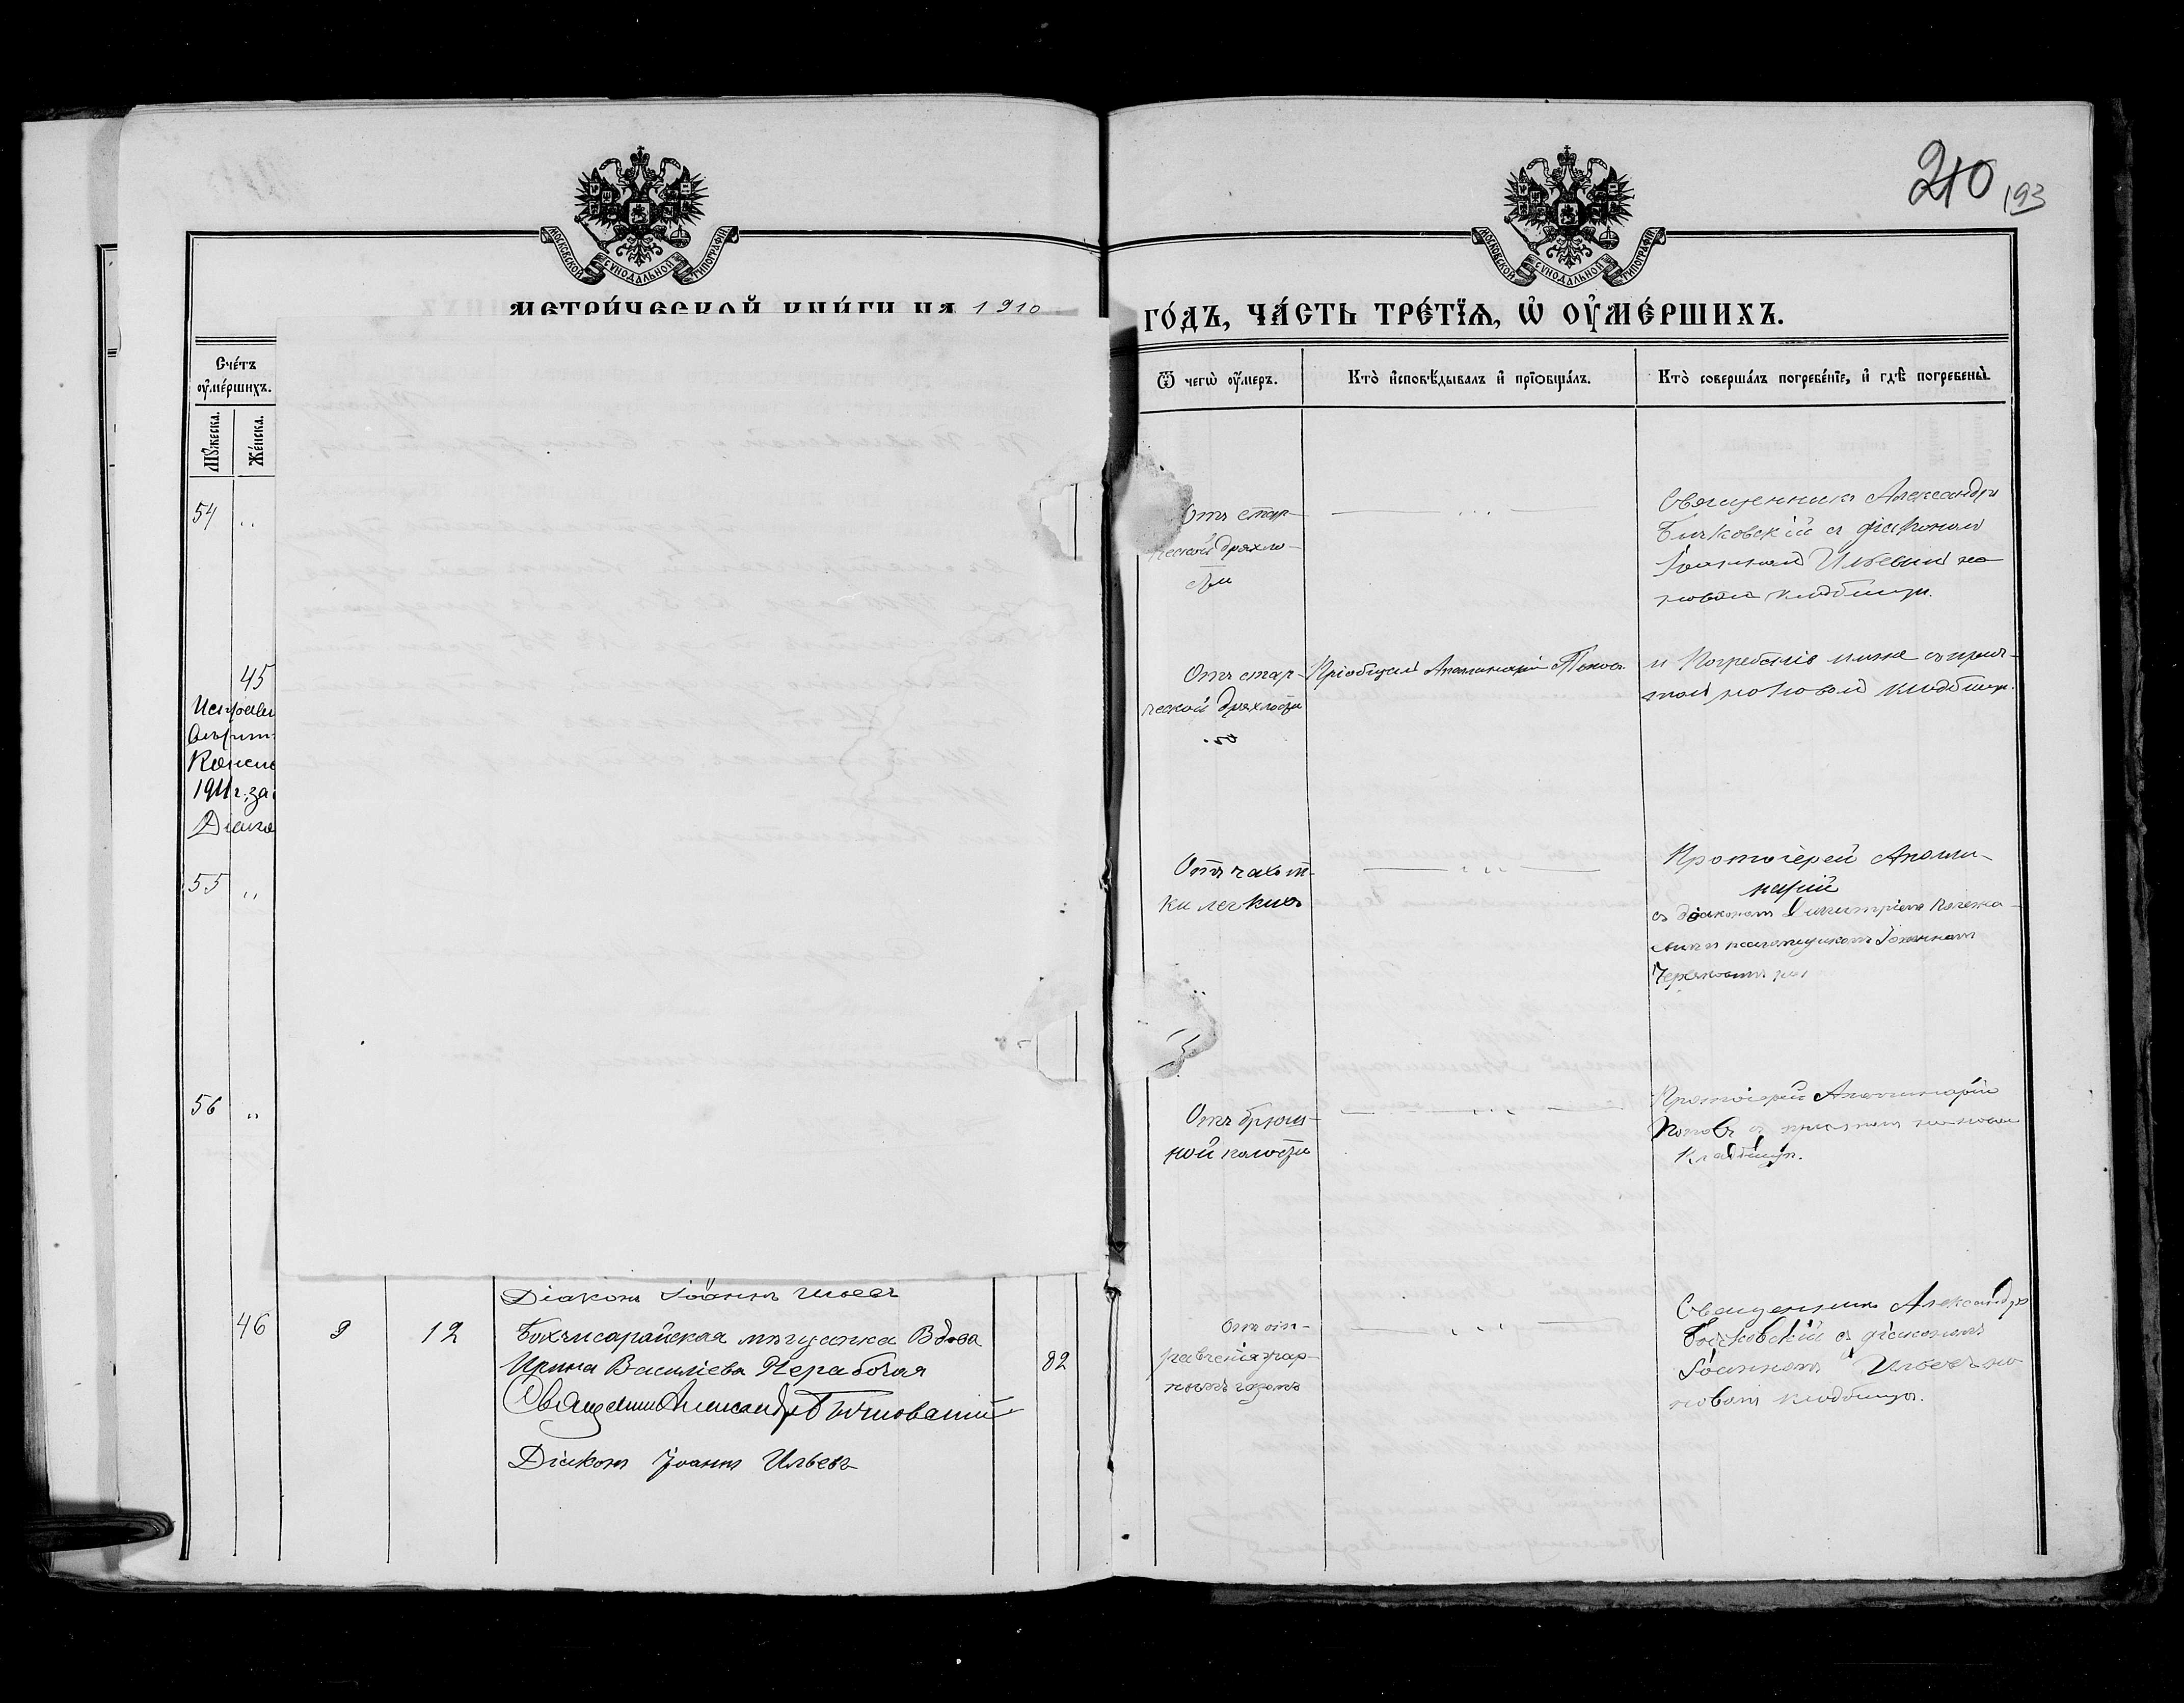 210 193
МОСКОВСКОЙ СУНОДАЛЬНОЙ ТИПОГРАФІИ
МОСКОВСКОЙ СУНОДАЛЬНОЙ ТИПОГРАФІИ
МЕТРИ́ЧЕСКОЙ КНИ́ГИ НА 1910
ГО́ДЪ, ЧА́СТЬ ТРЕ́ТЇѦ, Ѡ҆ ОУ҆МЕ́РШИХЪ.
Сче́тъ
оу҆ме́ршихъ.
Мꙋ́жеска.
Же́нска.
Ѿ чегѡ̀ оу҆́меръ.
Кто̀ и҆сповѣ́дывалъ и҆ прїѻбща́лъ.
Кто̀ соверша́лъ погребе́нїе, и҆ гдѣ̀ погребены̀.
54 „
Отъ стар-
ческой дряхло-
сти
Священникъ Александръ
Бычковскій съ діакономъ
Іоанномъ Ильевымъ на
новомъ кладбищѣ.
45
Отъ стар-
ческой дряхлости
Пріобщилъ Аполлинарій Поповъ
и Погребалъ онъ же съ прич-
томъ на новомъ кладбищѣ.
1911 г. за
55 „
Отъ чахот-
ки легкихъ
Протоіерей Аполли-
нарій
съ діакономъ Димитріемъ
и псаломщикомъ Іоанномъ
56 „
Отъ брюш-
ной полости
Протоіерей Аполлинарій
Поповъ съ причтомъ на новомъ
кладбищѣ.
Діаконъ Іоаннъ Ильевъ
46 9 12
Бахчисарайская мѣщанка Вдова
Ирина Василіева Неработая
82
Священникъ Александръ Бычковскій
Діаконъ Іоаннъ Ильевъ
Отъ от-
равленія угар-
нымъ газомъ
Священникъ Александръ
Бычковскій съ діакономъ
Іоанномъ Ильевъ на
новомъ кладбищѣ.